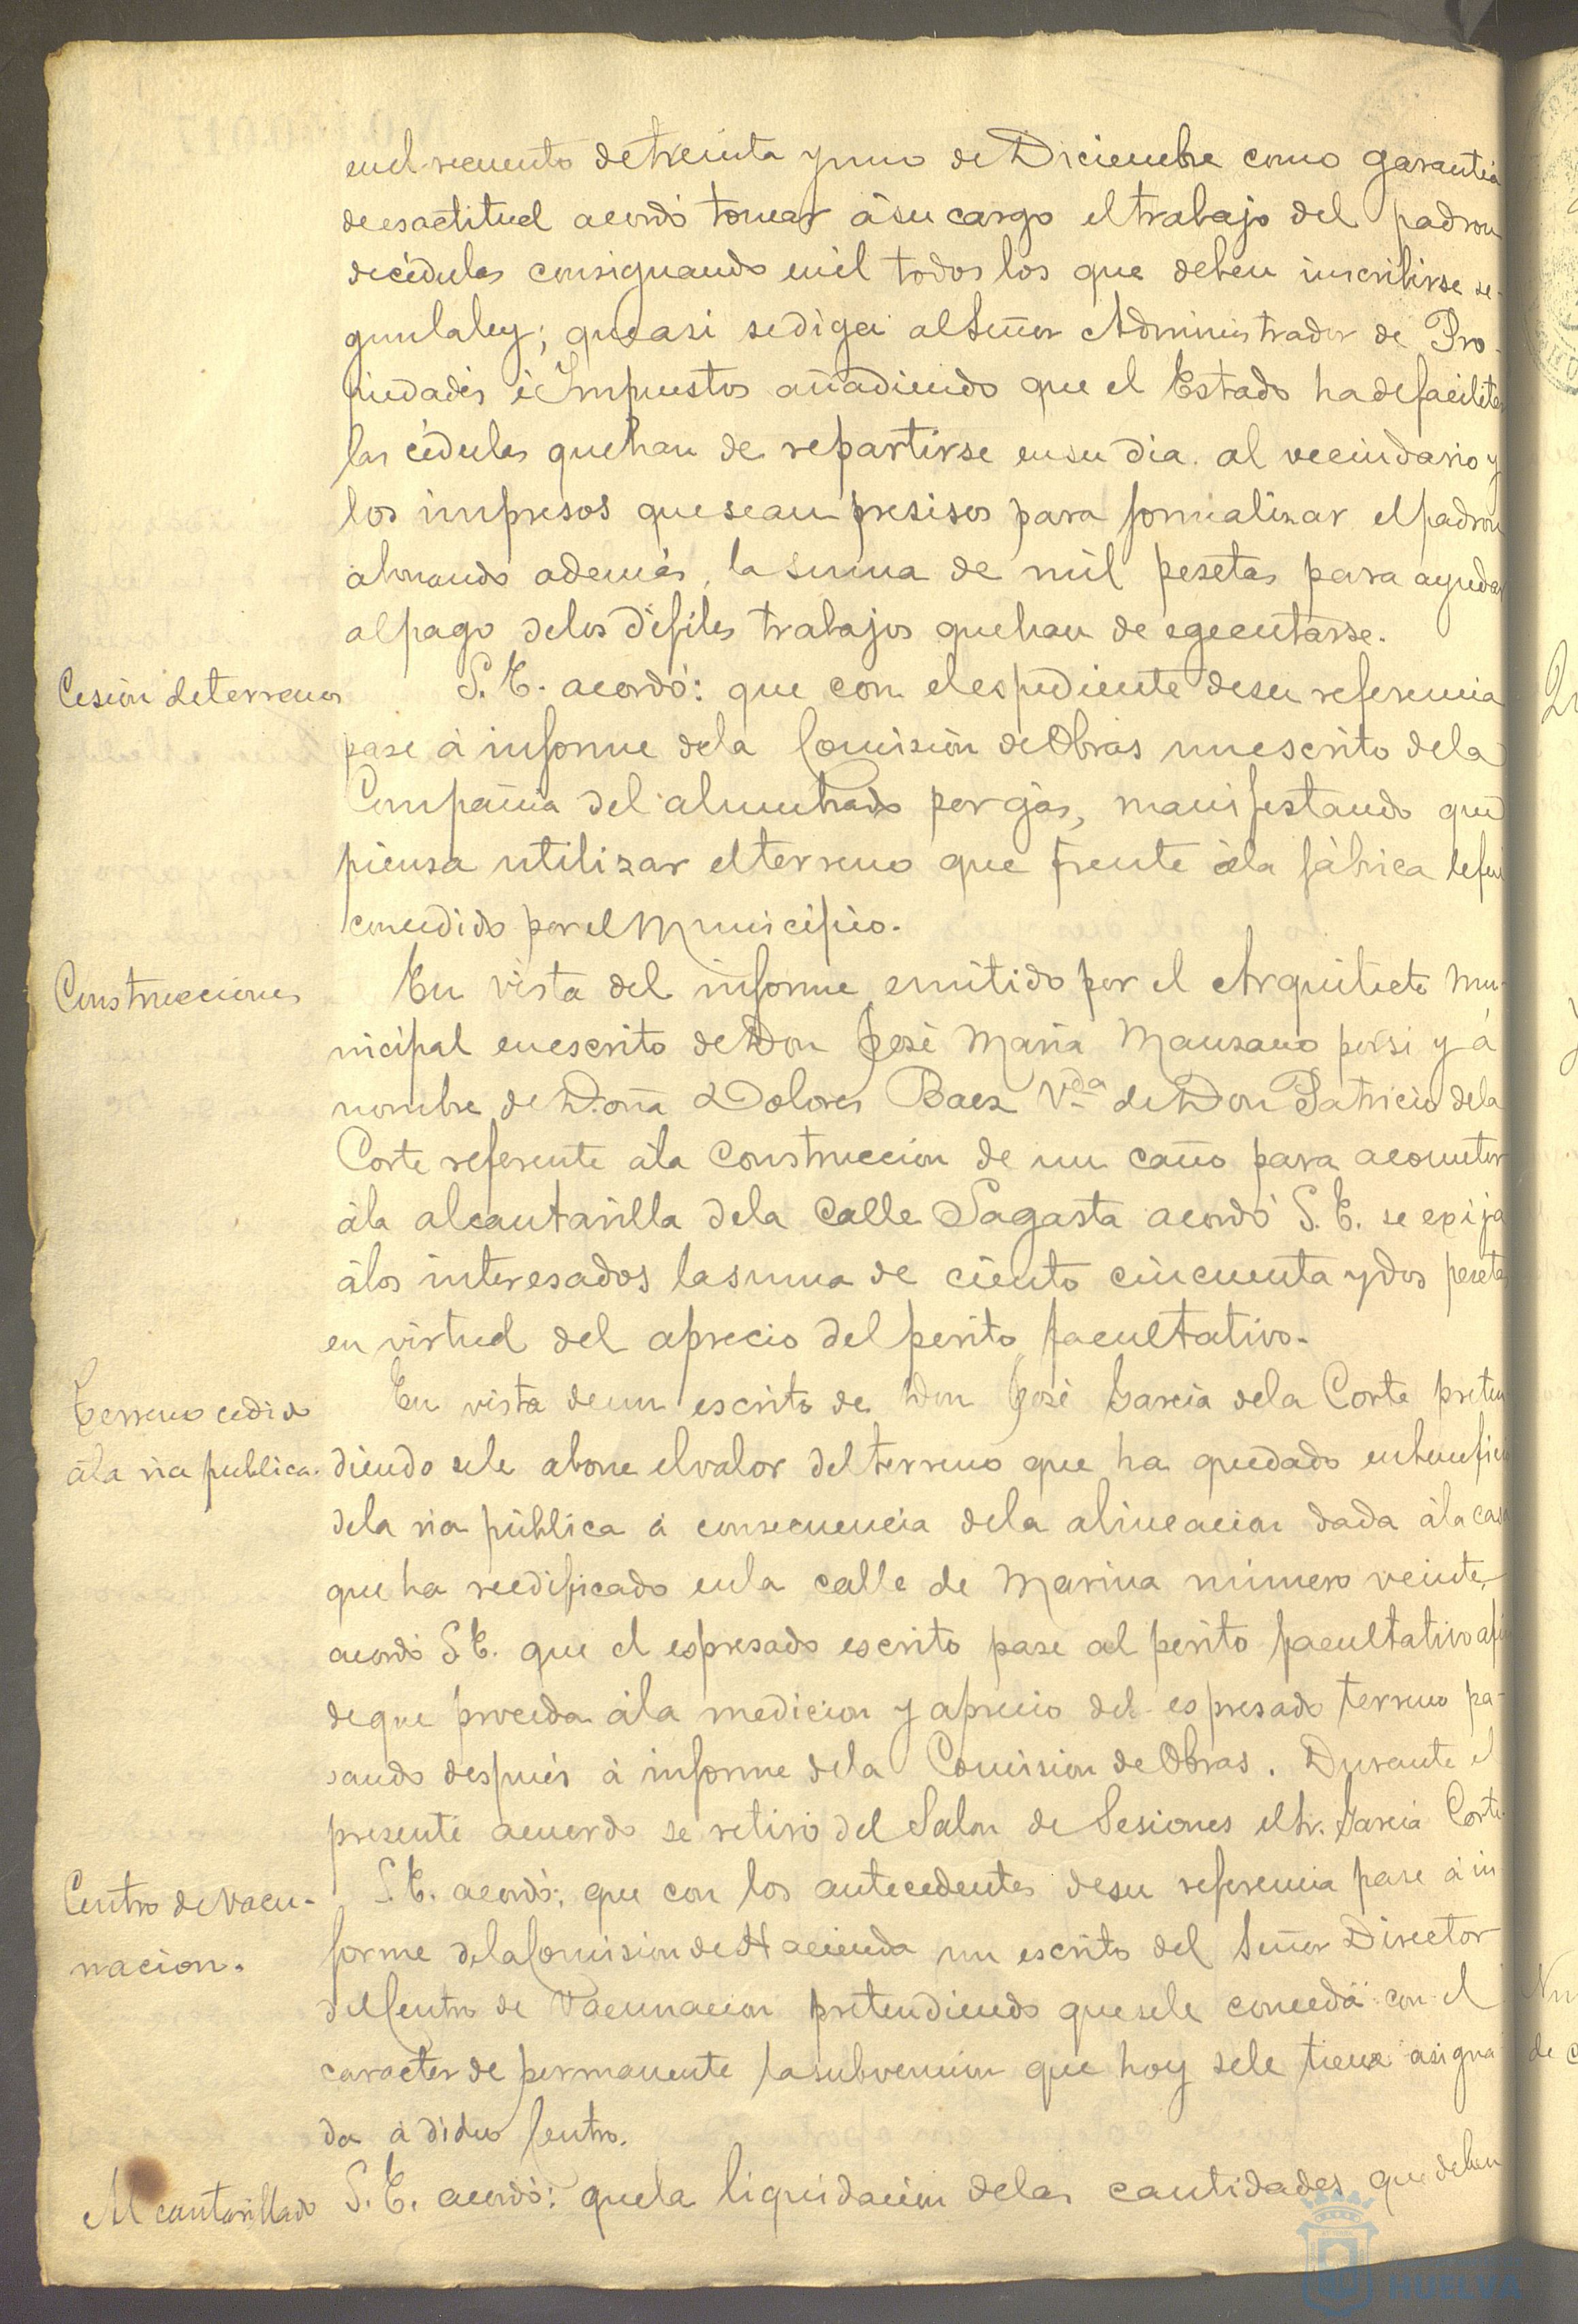 en el recuento de treinta y uno de Diciembre como garantia
de esactitud acordó tomar á su cargo el trabajo del padron
de cédulas consignando en él todos los que deben inscribirse se-
gun la ley; que asi se diga al Señor Administrador de Pro-
piedades é Impuestos añadiendo que el Estado ha de facilitar
las cédulas que han de repartirse en su dia al vecindario y
los impresos que sean presisos para formalizar el padron
abonando además, la suma de mil pesetas para ayudar
al pago de los dificiles trabajos que han de egecutarse.
Cesión de terrenos
S. E. acordó: que con el espediente de su referencia
pase á informe de la Comisión de Obras un escrito de la
Compañia del alumbrado por gas, manifestando que
piensa utilizar el terreno que frente á la fábrica le fué
concedido por el Municipio.
Construcciones
En vista del informe emitido por el Arquitecto Mu-
nicipal en escrito de Don José Maria Manzano por si y á
nombre de Doña Dolores Baez Vda de Don Patricio de la
Corte referente á la construccion de un caño para acometer
á la alcantarilla de la calle Sagasta acordó S. E. se exija
á los interesados la suma de ciento cincuenta y dos pesetas
en virtud del aprecio del perito facultativo.
Terreno cedido
á la via publica.
En vista de un escrito de Don José Garcia de la Corte preten
diendo se le abone el valor del terreno que ha quedado en beneficio
de la via pública á consecuencia de la alineacion dada á la casa
que ha reedificado en la calle de Marina número veinte,
acordó S. E. que el espresado escrito pase al perito facultativo a fin
de que proceda á la medicion y aprecio del espresado terreno pa-
sando después á informe de la Comision de Obras. Durante el
presente acuerdo se retiró del Salon de Sesiones el Sr. Garcia Corte.
Centro de vacu-
nacion.
S. E. acordó: que con los antecedentes de su referencia pase á in
forme de la Comision de Hacienda un escrito del Señor Director
del Centro de Vacunacion pretendiendo que se le conceda con el
caracter de permanente la subvención que hoy se le tiene asigna
da á dicho Centro.
Alcantarillado
S. E. acordó: que la liquidación de las cantidades que deben
HUELVA